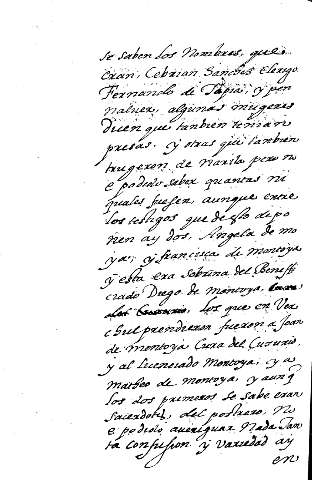 se saben los Nombres, que
eran, Cebrian Sanches Clerigo
Fernando de Tapia, y pen
naluer, algunas mugeres
dicen que tanbien tenian
presas, y otras que tambien
trugeron de narila pero no
e podido saber quantas ni
quales fuesen aunque entre
los testigos que desto depo
nen ay dos, Angela de mo
ya, y francisca de montoya
y esta era sobrina del Benefi
ciado Diego de montoya
los que en Ver
chul prendieron fueron a Joan
de montoya Cura del
y al licenciado montoya, y a
matheo de montoya y aunq
los dos primeros se sabe eran
sacerdotes, del postrero, No
e podido aueriguar Nada, tan
ta confusion y variedad ay
en